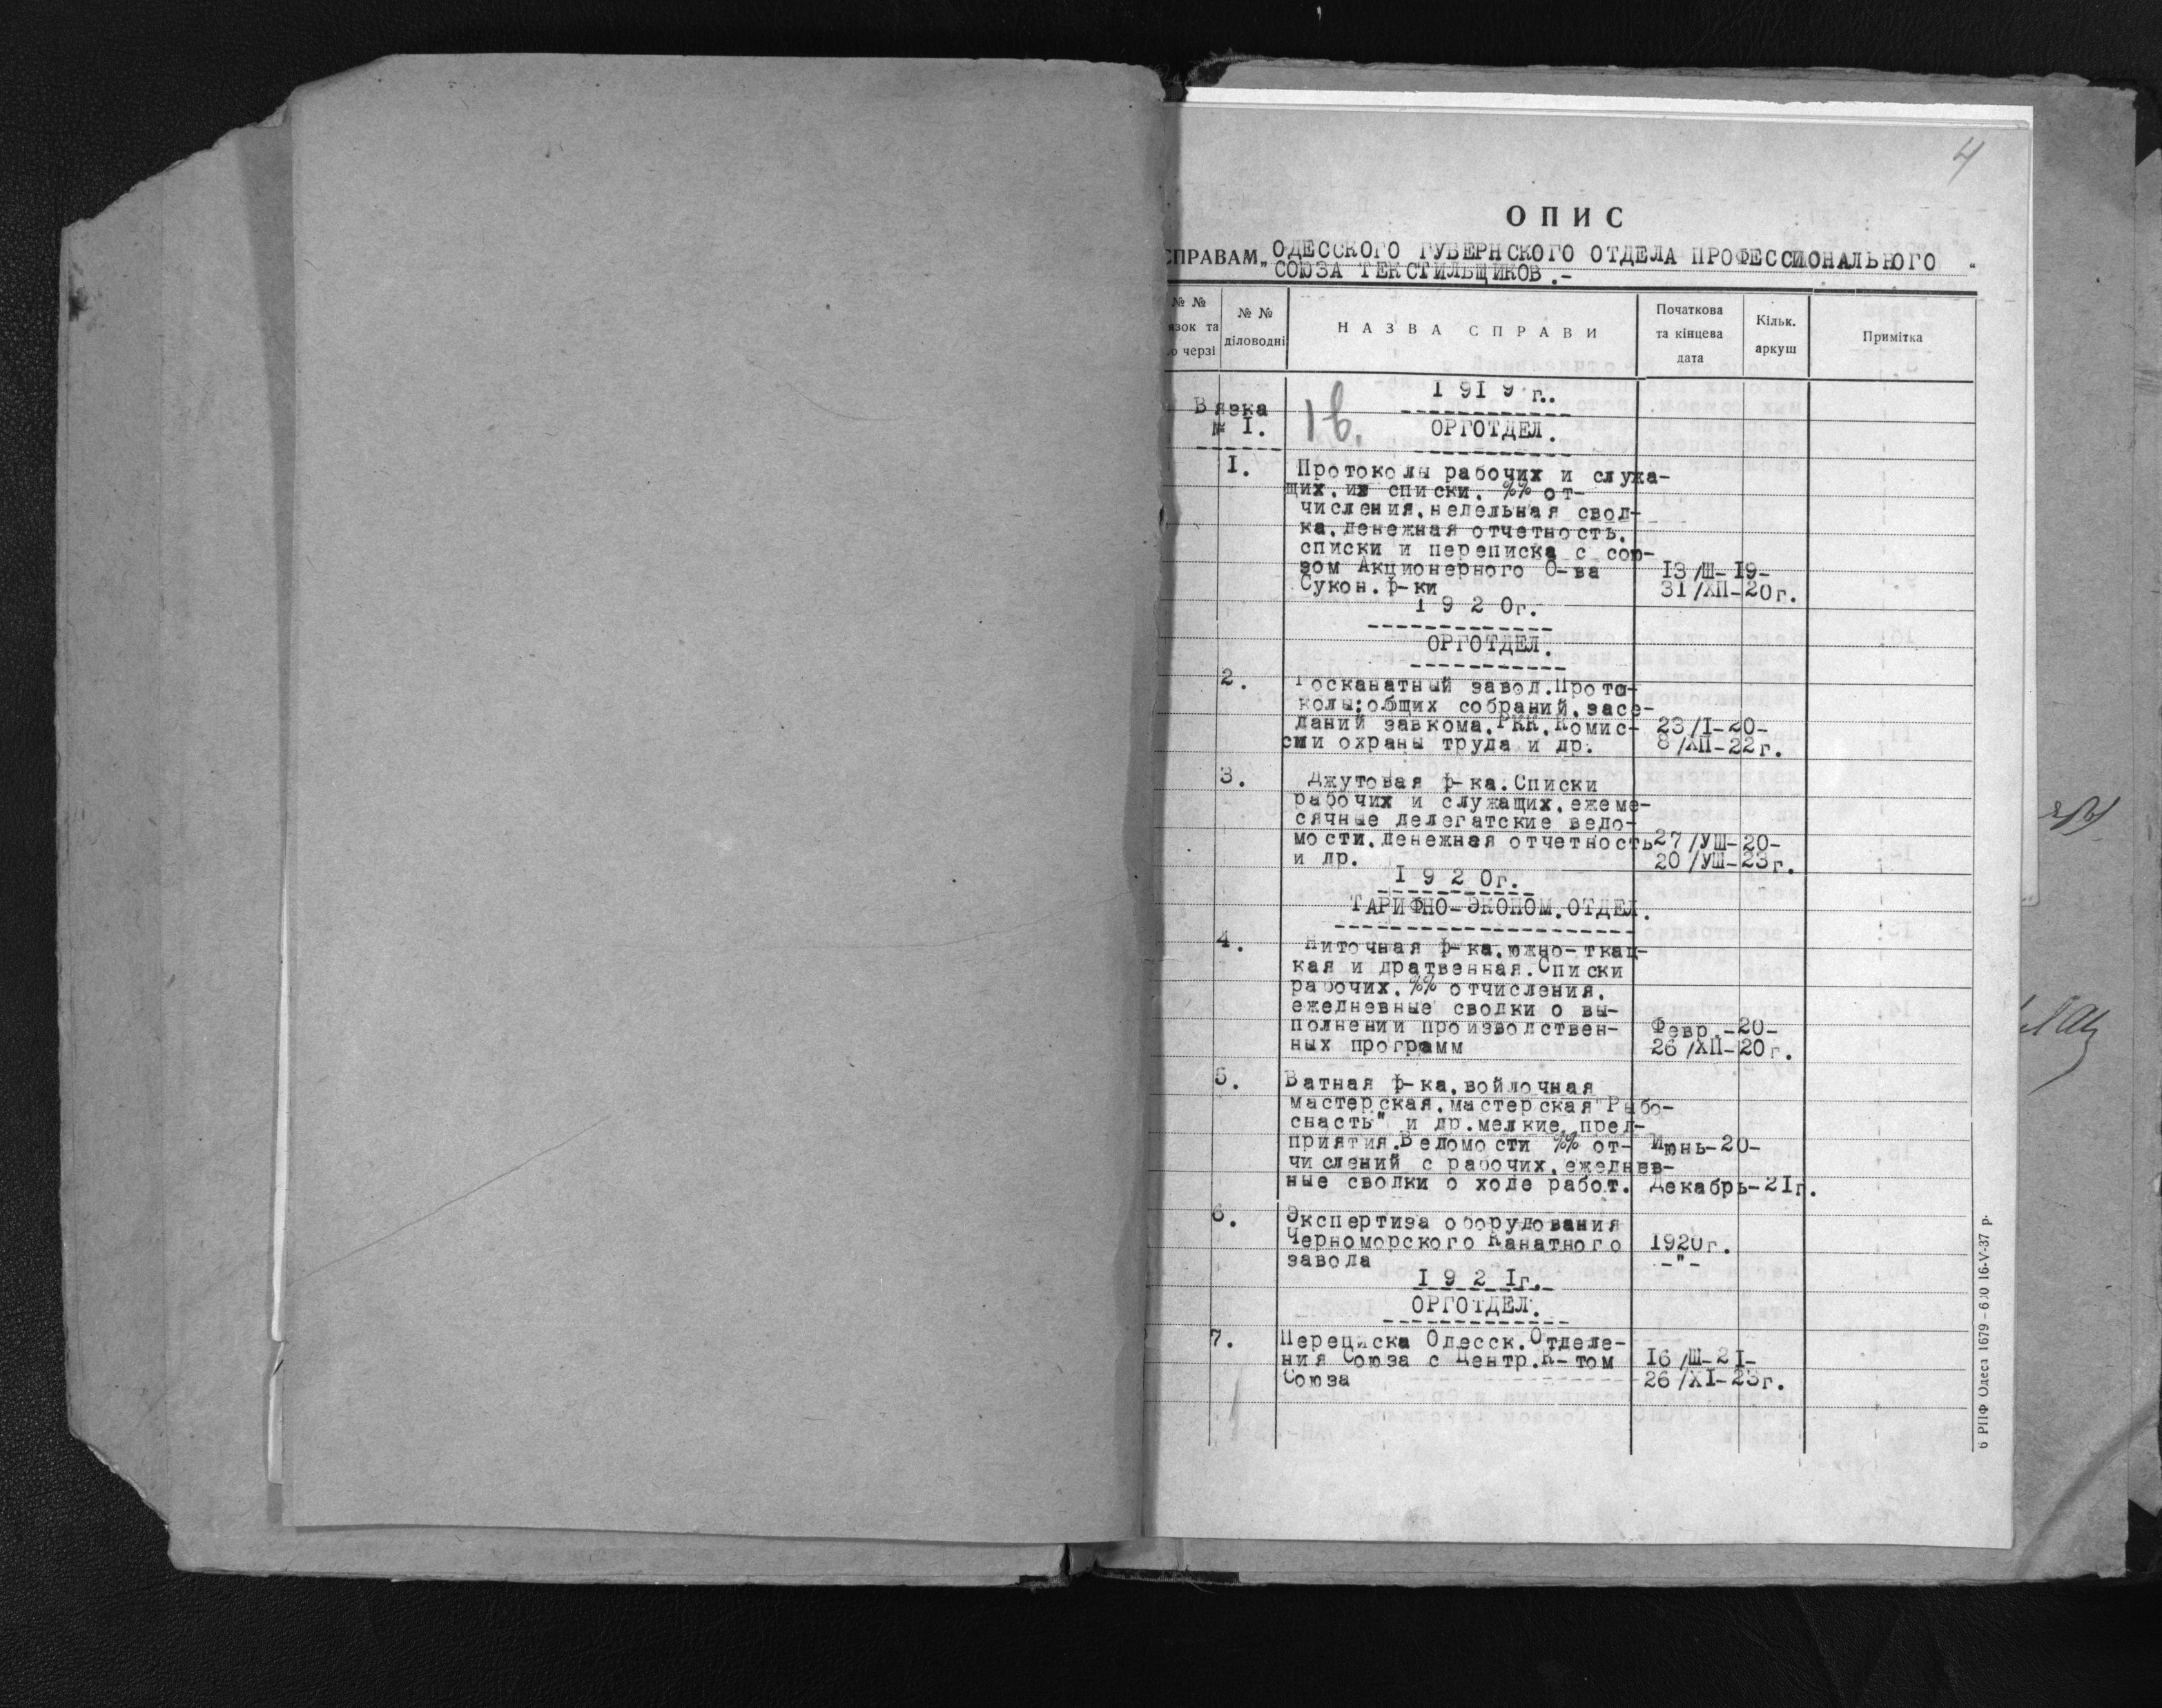 4
ОПИС
СПРАВАМ „ОДЕССКОГО ГУБЕРНСКОГО ОТДЕЛА ПРОФЕССИОНАЛЬНОГО
СОЮЗА ТЕКСТИЛЬЩИКОВ.-
№ №
язок та
о черзі
№ №
діловодні
НАЗВА СПРАВИ
Початкова
та кінцева
дата
Кільк.
аркуш
Примітка
1919 г..
Вязка
№ I.
ОРГОТДЕЛ.
I. Протоколы рабочих и служа-
щих, их списки, %% от-
числения, недельная свод-
ка, денежная отчетность,
списки и переписка с сою-
зом Акционерного О-ва 13/Ш-19-
Сукон. ф-ки 31/ХП-20г.
1920г.
ОРГОТДЕЛ.
2. Госканатный завод. Прото-
колы: общих собраний, засе-
даний завкома, РКК, Комис- 23/I-20-
сии охраны труда и др. 8/ХП-22г.
3. Джутовая ф-ка. Списки
рабочих и служащих, ежеме-
сячные делегатские ведо-
мости, денежная отчетность 27/УШ-20-
и др. 20/УШ-23г.
1920г.
ТАРИФНО-ЭКОНОМ.ОТДЕЛ.
4. Ниточная ф-ка, южно-ткац-
кая и дратвенная. Списки
рабочих, %% отчисления,
ежедневные сводки о вы-
полнении производствен- Февр.-20-
ных программ 26/ХП-20г.
5. Ватная ф-ка, войлочная
мастерская, мастерская"Рыбо-
снасть" и др.мелкие пред-
приятия. Ведомости %% от- Июнь-20-
числений с рабочих, ежеднев-
ные сводки о ходе работ. Декабрь-21г.
6. Экспертиза оборудования
Черноморского Канатного 1920г.
завода -"-
1921г.
ОРГОТДЕЛ.
7. Переписка Одесск. Отделе-
ния Союза с Центр. К-том 16/Ш-21-
Союза 26/XI-23г.
РПФ Одеса 1679 - 16-V-37 р.